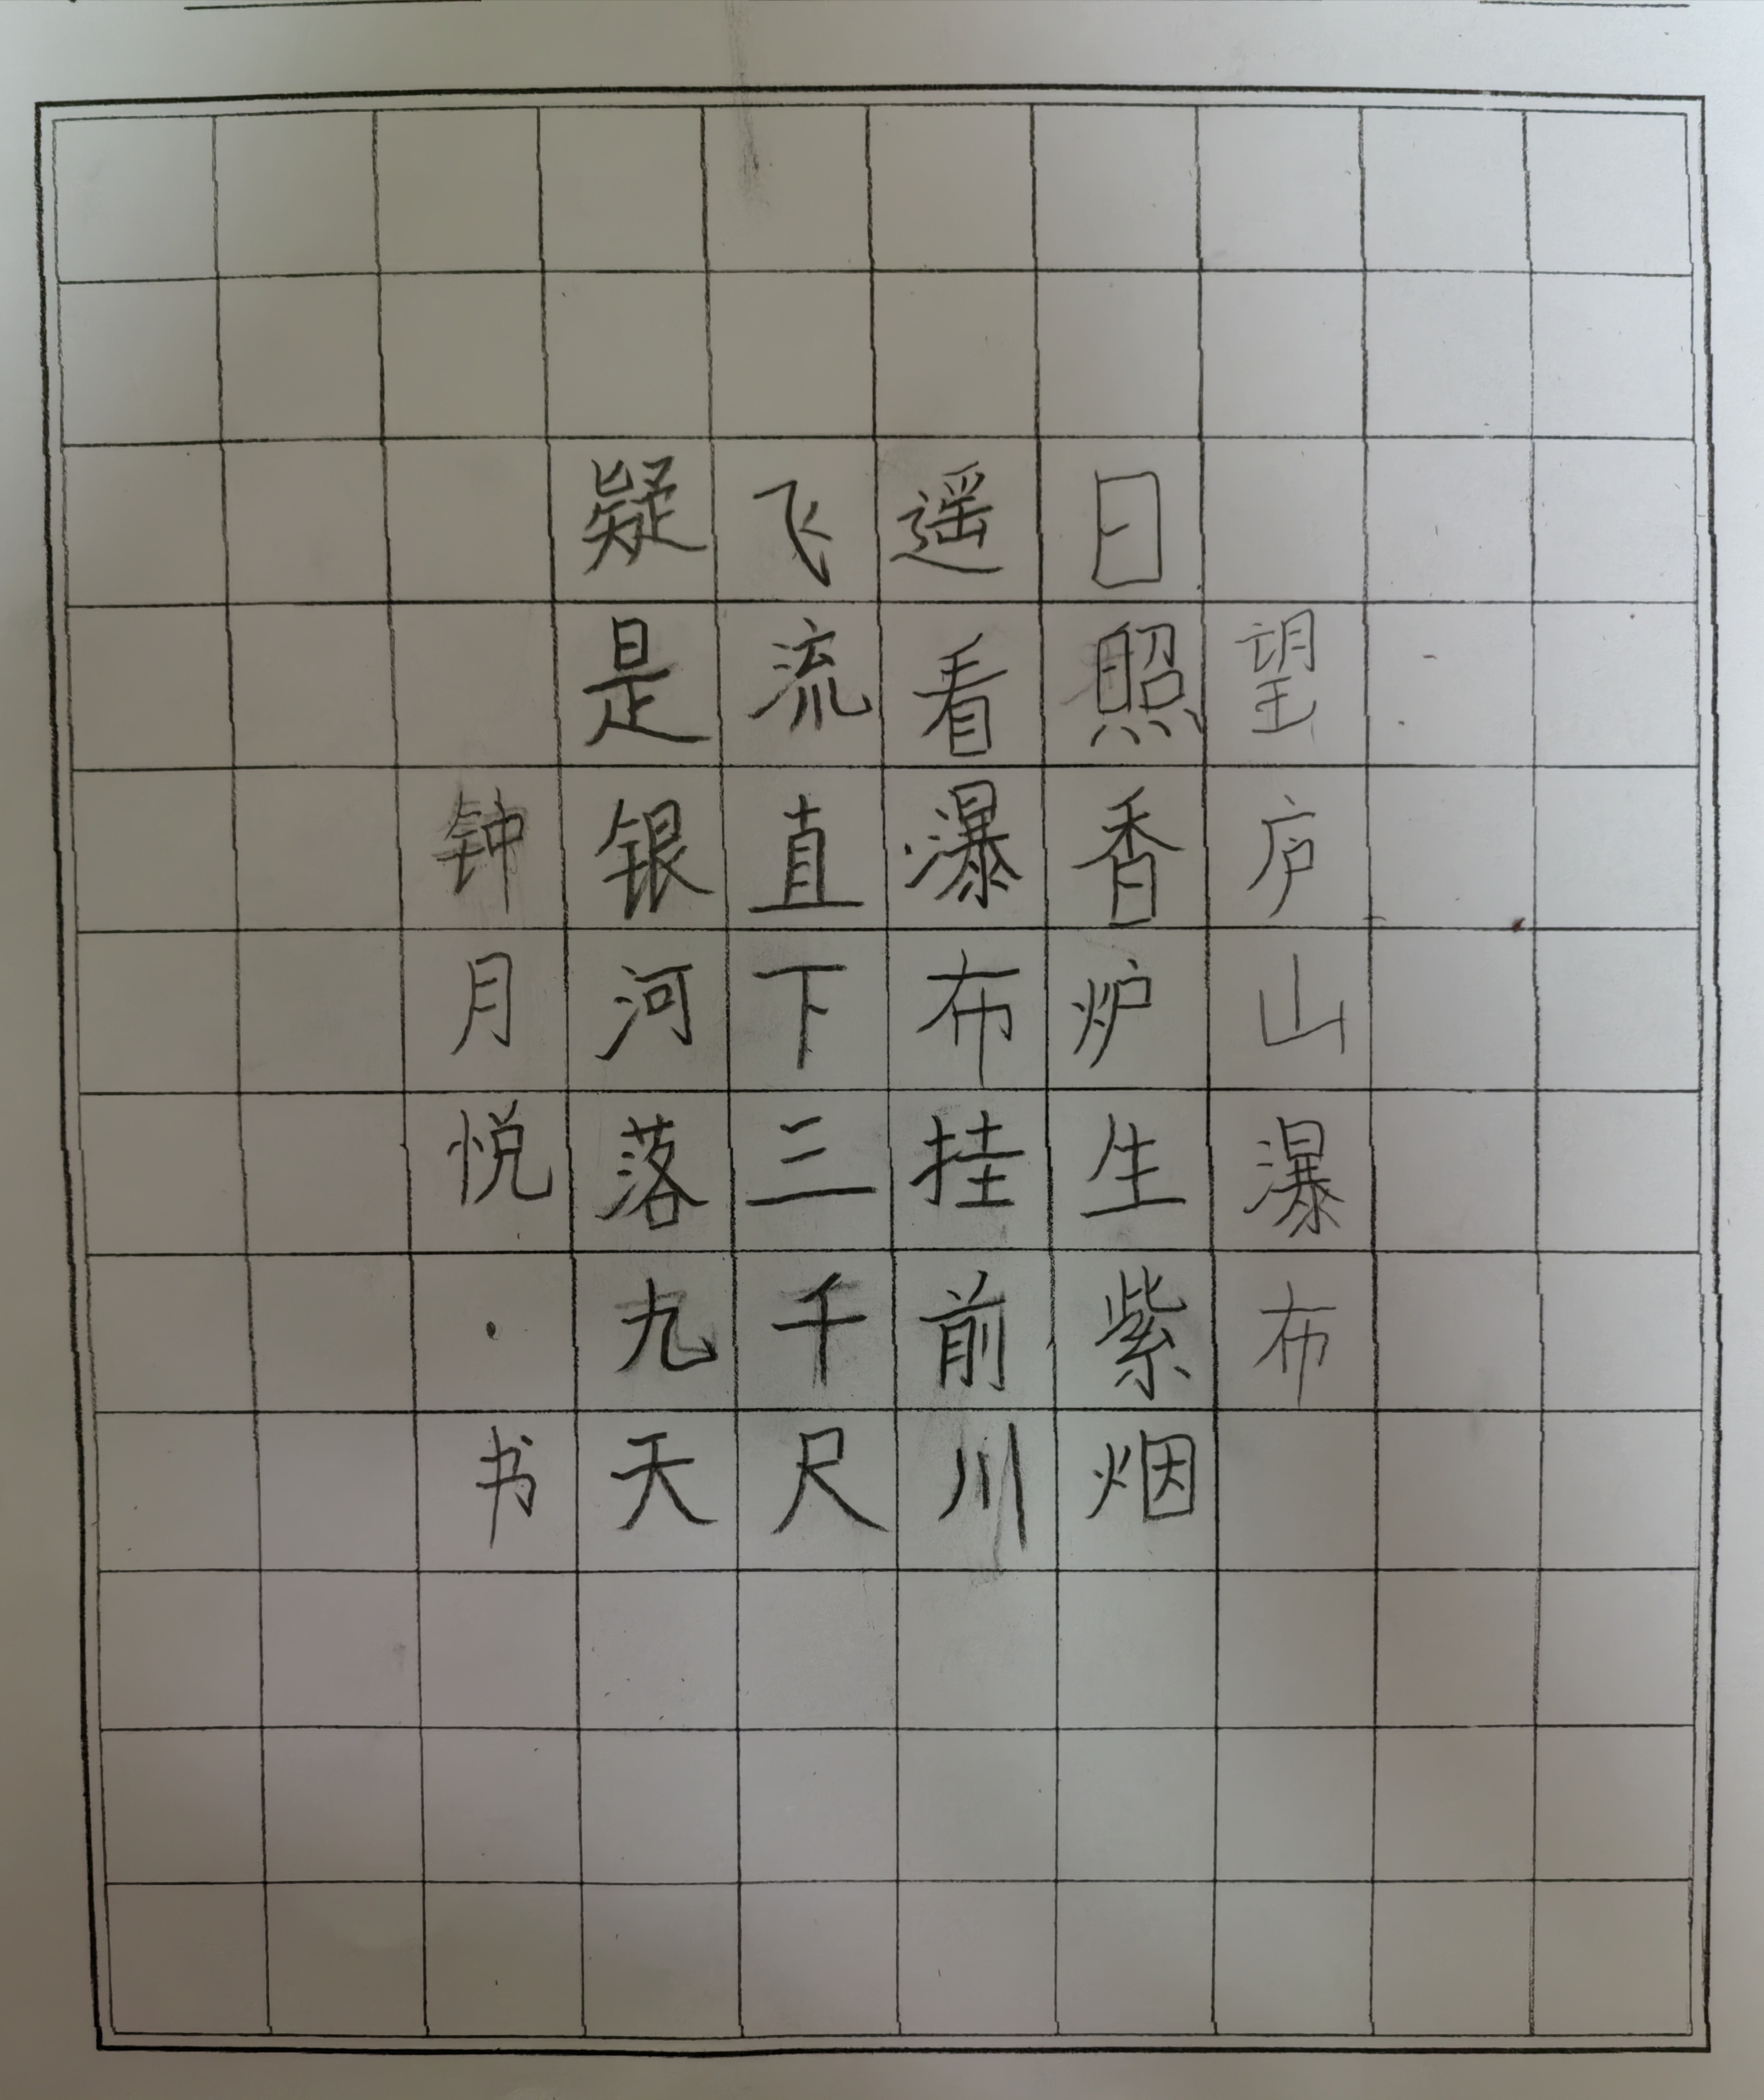 望庐山瀑布
日照香炉生紫烟
遥看瀑布挂前川
飞流直下三千尺
疑是银河落九天
钟月悦·书